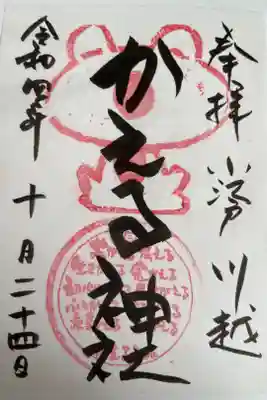 奉拝 小江戸 川越
かえる神社
令和四年
十月二十四日